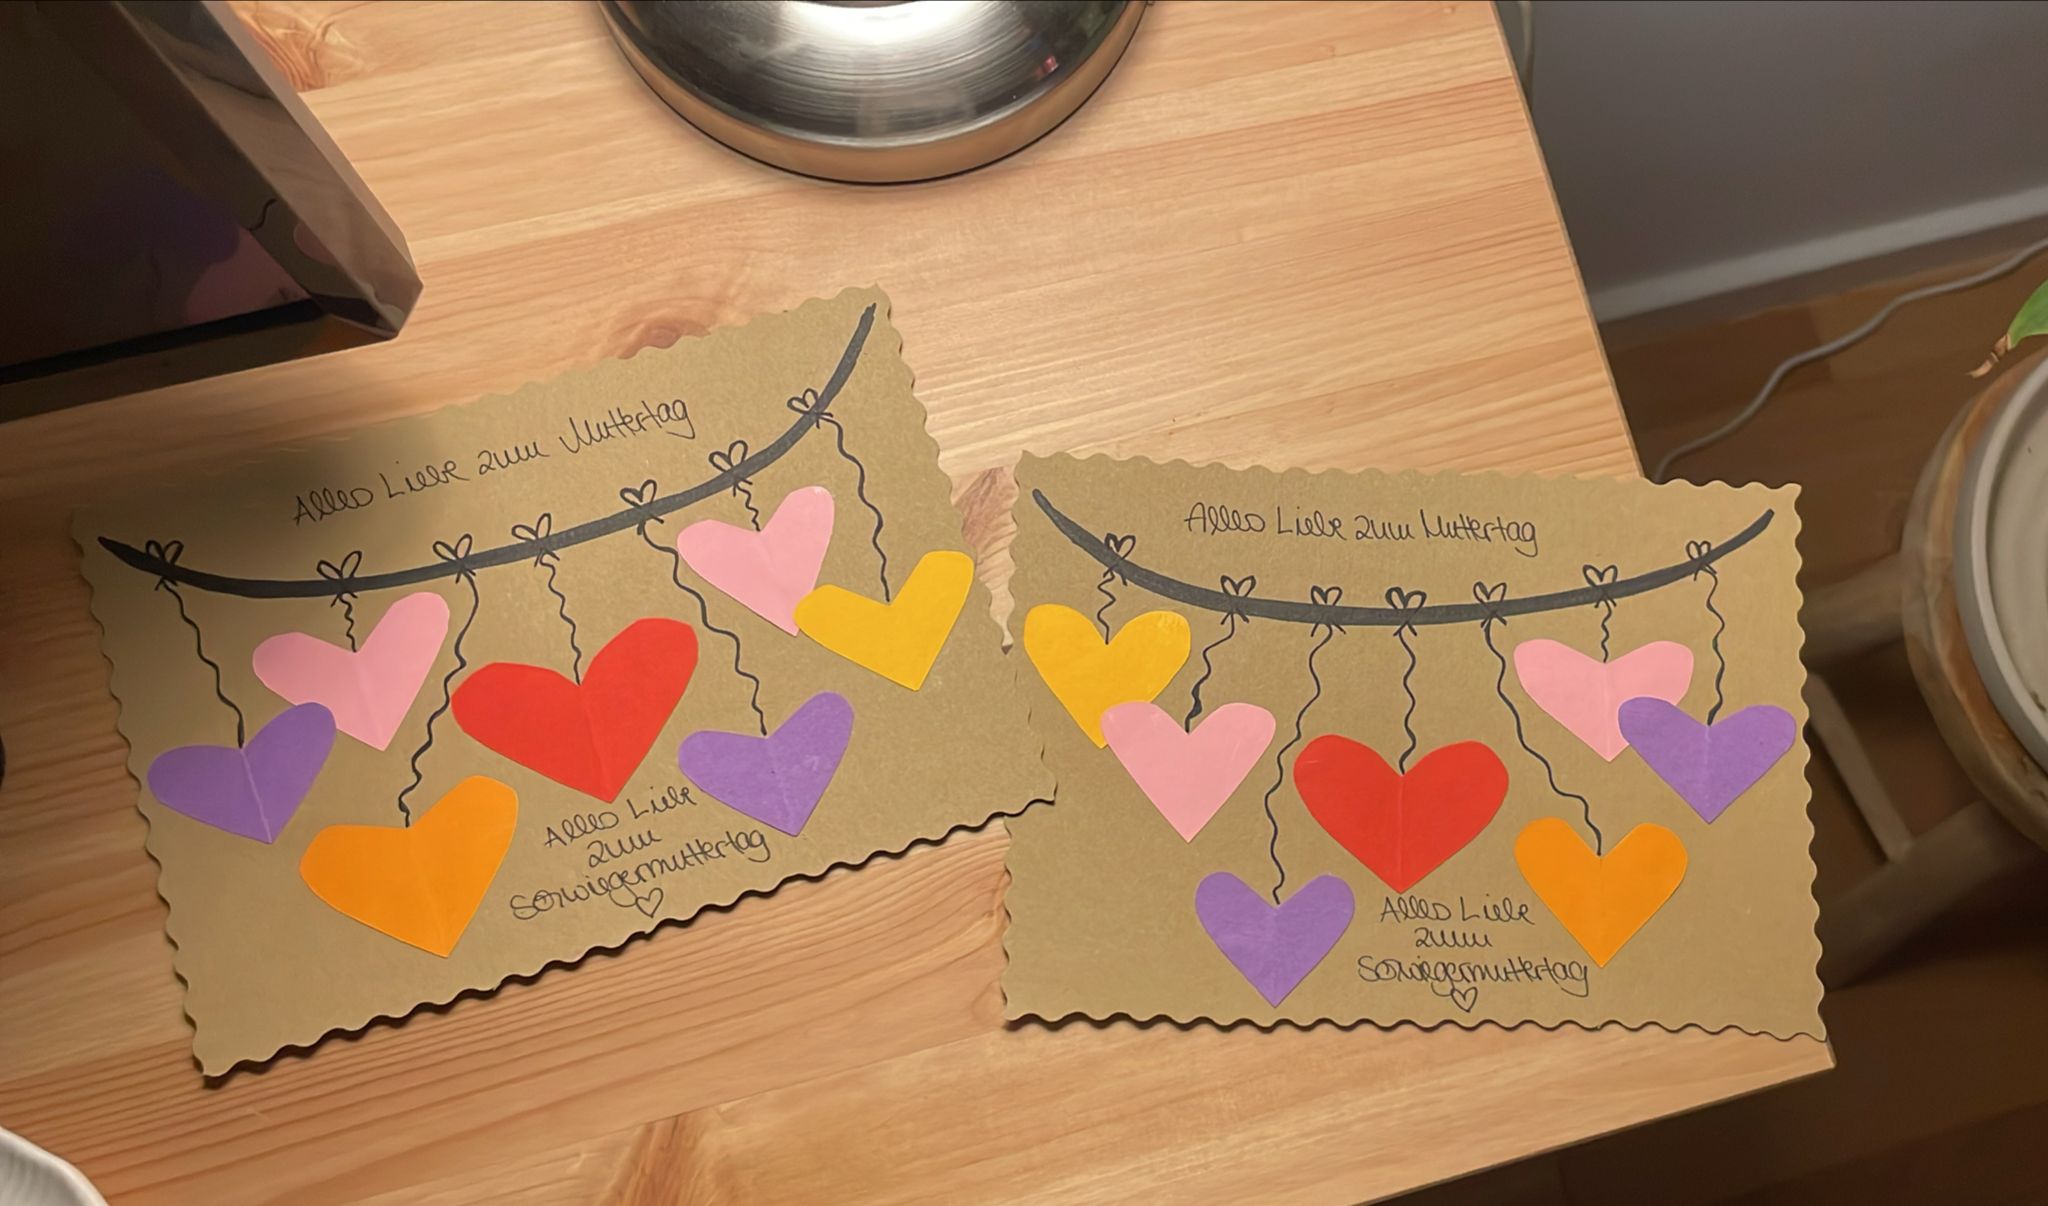 Alles Liebe zum Muttertag
Alles Liebe
zum
Schwiegermuttertag
Alles Liebe zum Muttertag
Alles Liebe
zum
Schwiegermuttertag